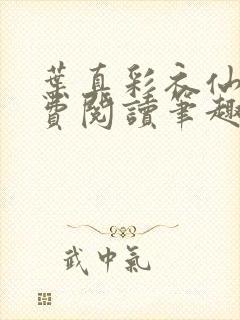 葉真彩衣仙
費閱讀筆趣
武中氣